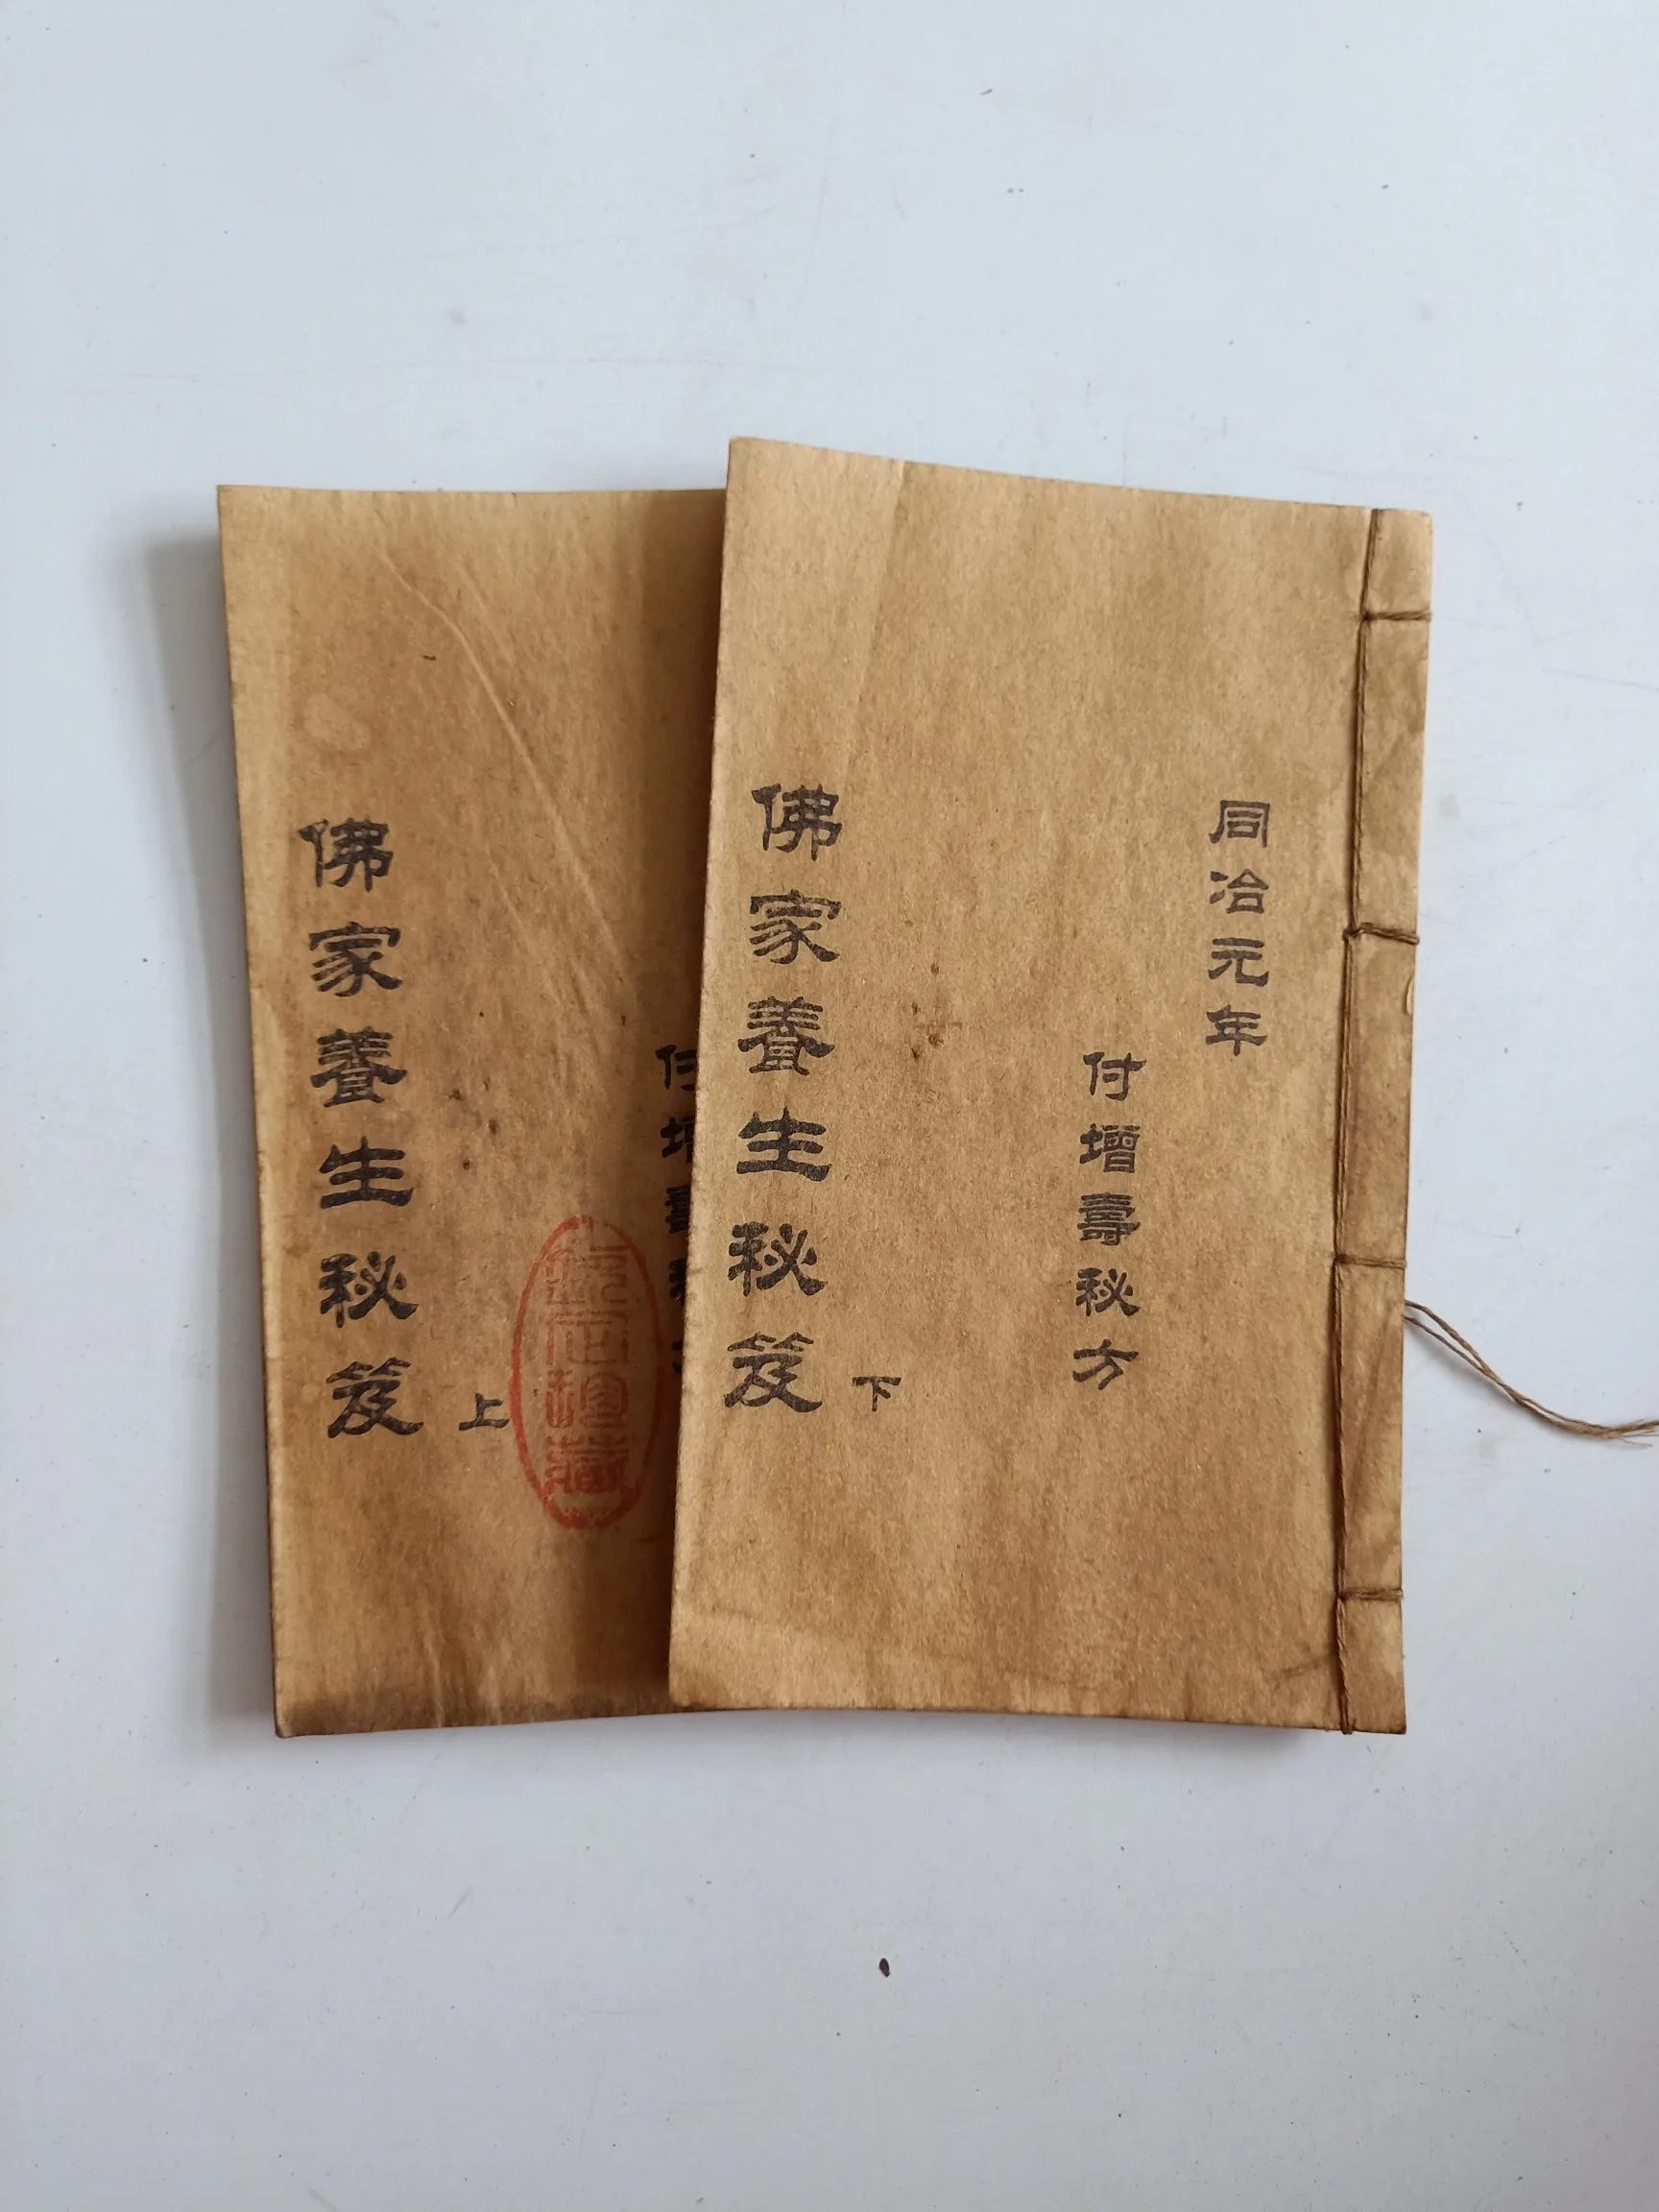 同冶元年
付增壽秘方
佛家養生秘笈
下
付增壽秘
佛家養生秘笈
上